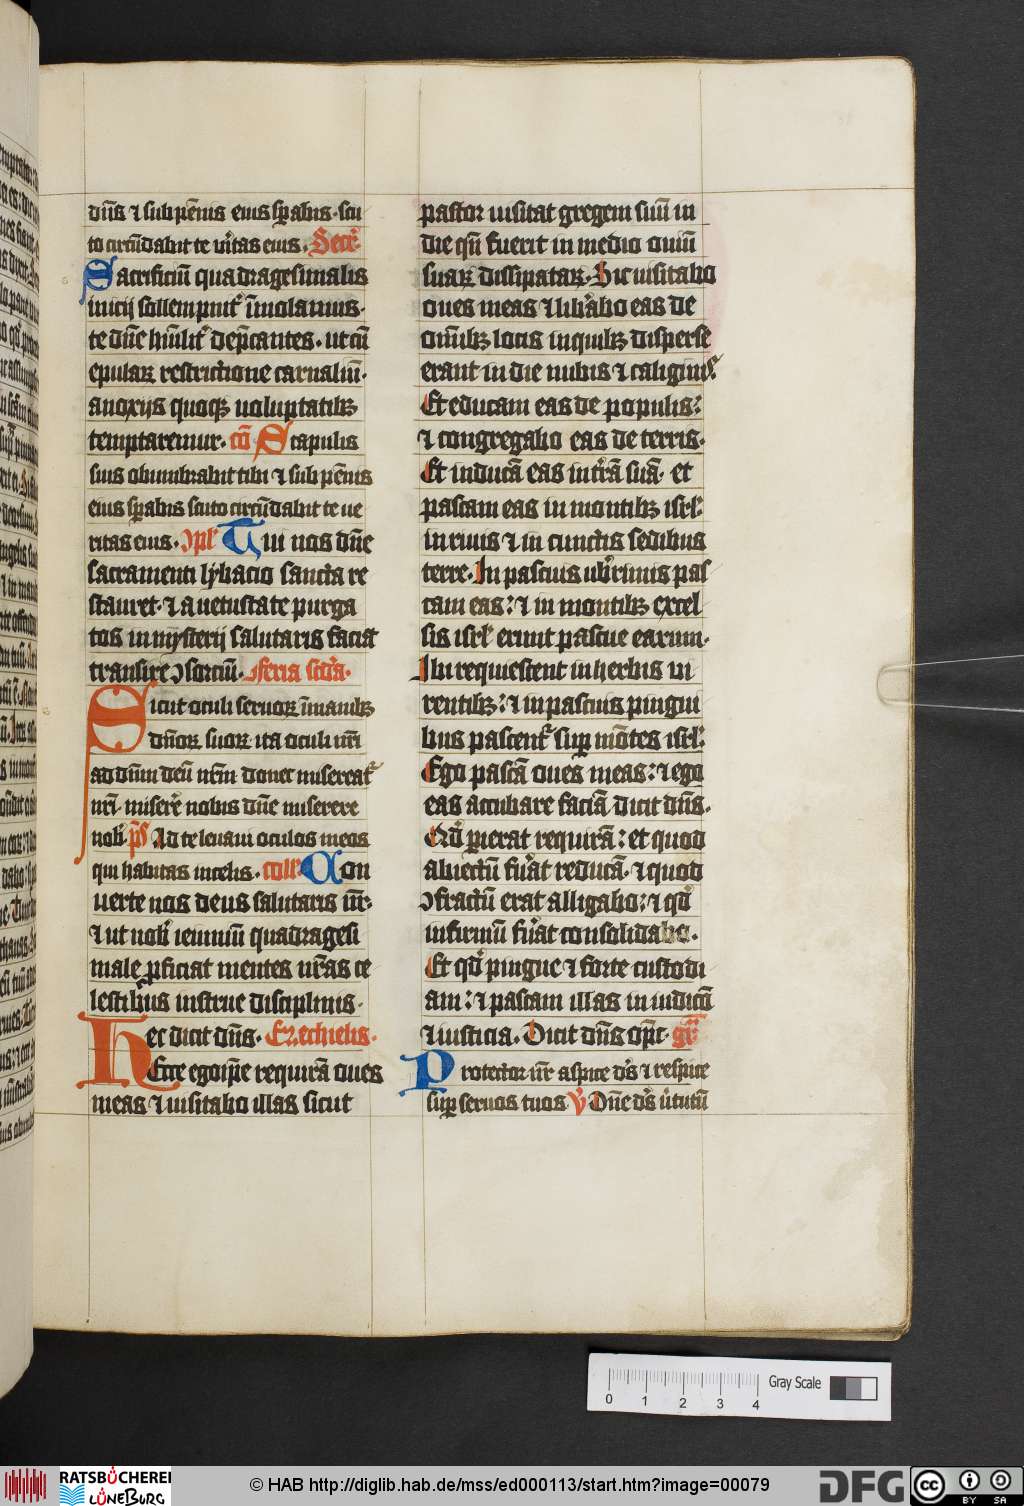 dn̄s ⁊ sub pēnis eius sp̄abis · scu
to circūdabit te v̓itas eius . Secr̄
Sacrificiū quadragesimalis
inicij sollempnit͛ īmolamus ·
te dn̄e hūilit͛ dep̄cantes · ut cū
epulaꝝ restrictione carnaliū ·
a noxijs quoqꝫ uoluptatibꝫ
temptaremur · cō Scapulis
suis obumbrabit tibi ⁊ sub pēnis
eius sp̄abis scuto circūdabit te ue
ritas eius · ꝯpl̄ Tui nos dn̄e
sacramenti lybacio sancta re
stauret · ⁊ a uetustate purga
tos in mysterij salutaris faciat
transire ꝯsorciū · Feria scd̓a ·
Sicut oculi seruoꝝ ī manibꝫ
dn̄oꝝ suoꝝ ita oculi nr̄i
ad dn̄m deū nr̄m donec misereat͛
nr̄i · miser̄e nobis dn̄e miserere
nob̓ · p̄s Ad te leuaui oculos meos
qui habitas in celis · coll̄ Con
uerte nos deus salutaris nr̄ ·
⁊ ut nob̓ ieiuniū quadragesi
male ꝓficiat mentes nr̄as ce
lestibus instrue disciplinis ·
Hec dicit dn̄s · Ezechielis ·
Ecce ego ip̄e requirā oues
meas ⁊ uisitabo illas sicut
pastor uisitat gregem suū in
die qn̄ fuerit in medio ouiū
suaꝝ dissipataꝝ · Sic uisitabo
oues meas ⁊ lib̓abo eas de
om̄ibꝫ locis in quibꝫ disperse
erant in die nubis ⁊ caliginis ·
Et educam eas de populis :
⁊ congregabo eas de terris ·
Et inducā eas in t̓rā suā · et
pascam eas in montibꝫ isrl̄ ·
in riuis ⁊ in cunctis sedibus
terre · In pascuis ub̓rimis pas
cam eas : ⁊ in montibꝫ excel
sis isrl̄ erunt pascue earum ·
Ibi requiescent in herbis ui
rentibꝫ : ⁊ in pascuis pingui
bus pascent͛ suꝑ mōtes isrl̄ ·
Ego pascā oues meas : ⁊ ego
eas accubare faciā dicit dn̄s ·
Qd̓ perierat requirā : et quod
abiectū fu̓at reducā · ⁊ quod
ꝯfractū erat alligabo : ⁊ qd̓
infirmū fu̓at consolidabo ·
Et qd̓ pingue ⁊ forte custodi
am : ⁊ pascam illas in iudicio
⁊ iusticia · Dicit dn̄s op̄c · gr̄
Protector nr̄ aspice ds̄ ⁊ respice
suꝑ seruos tuos V̓ Dn̄e ds̄ v̓tutū
Gray Scale
0 1 2 3 4
RATSBÜCHEREI
LÜNEBURG
© HAB http://diglib.hab.de/mss/ed000113/start.htm?image=00079
DFG
cc BY SA